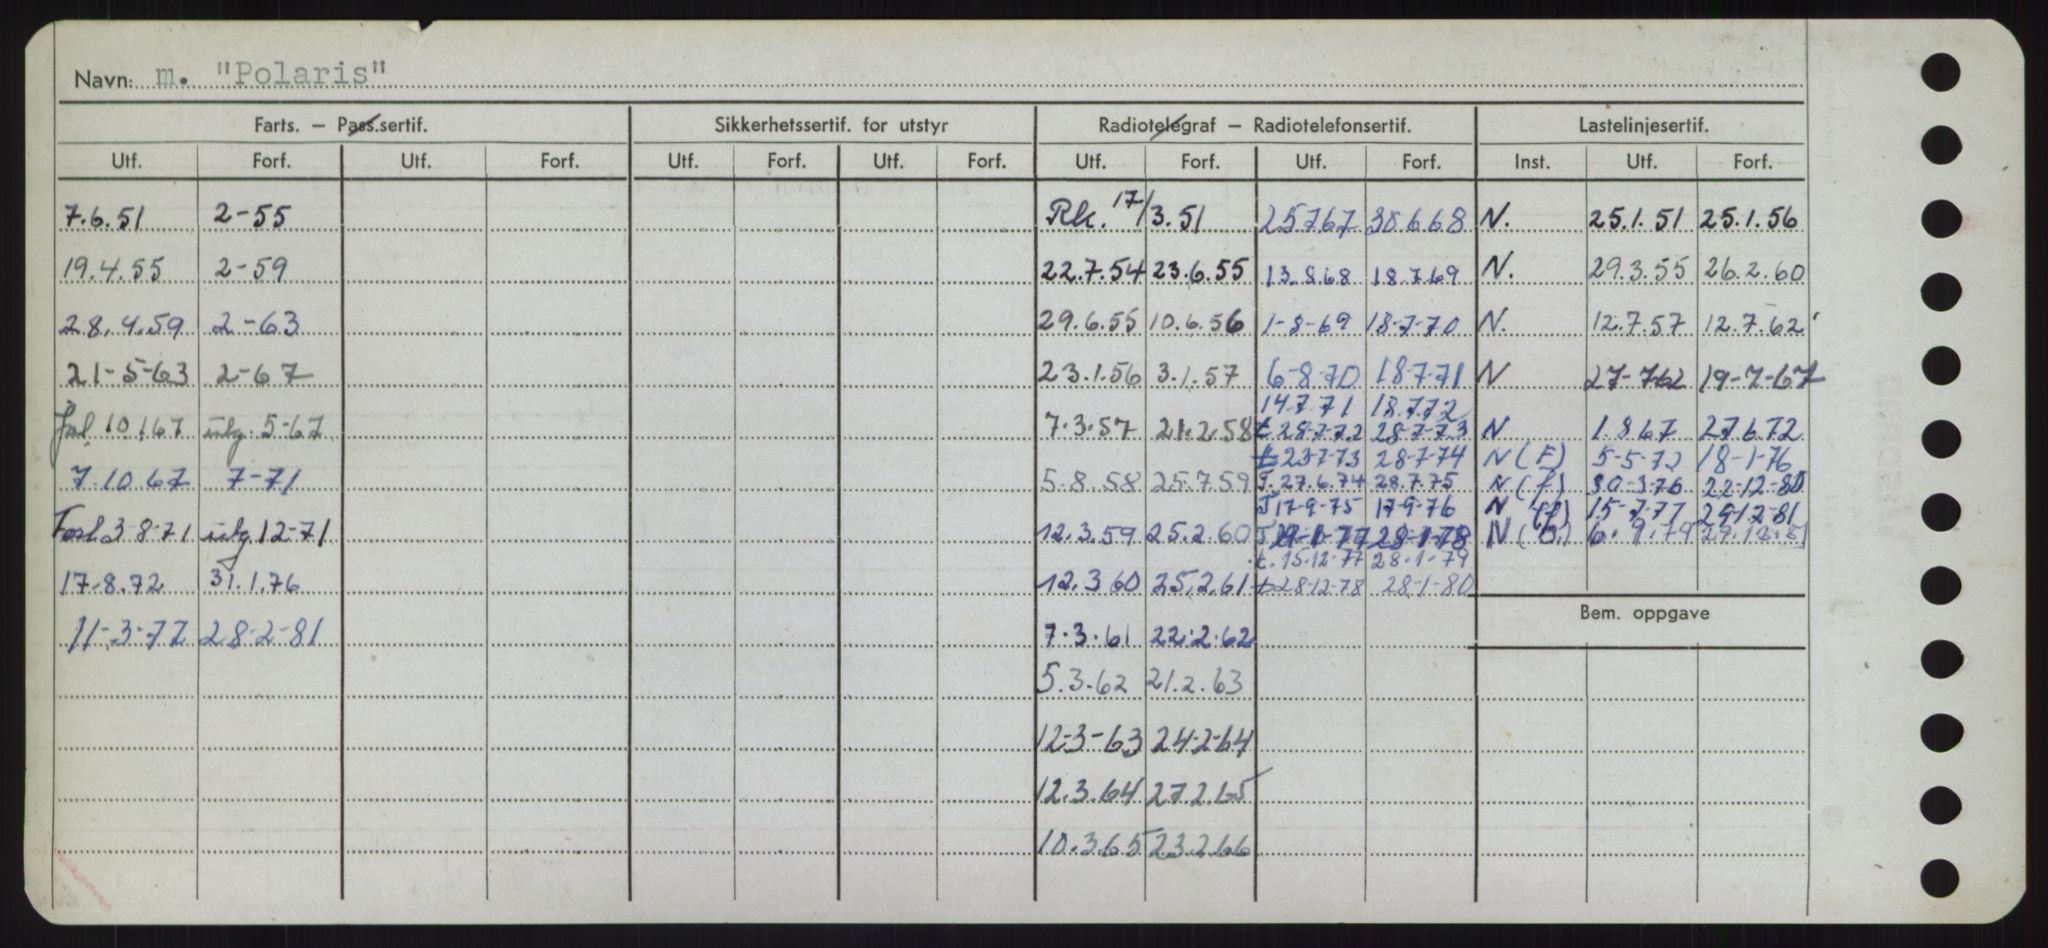 Navn: m. "Polaris"
Farts. – Pass.sertif. Sikkerhetssertif. for utstyr Radiotelegraf – Radiotelefonsertif. Lastelinjesertif.
Utf. Forf. Utf. Forf. Utf. Forf. Utf. Forf. Utf. Forf. Utf. Forf. Inst. Utf. Forf.
7.6.51 2-55 Rk. 17/3.51 25767 30668 N. 25.1.51 25.1.56
19.4.55 2-59 22.7.54 23.6.55 13.868 18.769 N. 29.3.55 26.2.60
28.4.59 2-63 29.6.55 10.6.56 1-8-69 18-7-70 N. 12.7.57 12.7.62
21-5-63 2-67 23.1.56 3.1.57 6-8-70 18-7-71 N 27-762 19-7-67
14771 18772
10.1.67 5-67 7.3.57 21.2.58 t 28-7-72 28-7-73 N 1.867 27672
t 23-7-73 28-7-74 N (F) 5-5-72 18-1-76
7.10.67 7-71 5.8.58 25.759 T. 27.6.74 28.7.75 N (f) 30-3-76 22-12-80
T 17-9-75 17-9-76 N (f) 15-7-77 29-12-81
3-8-71 12-71 12.3.59 25.2.60 28-1-78 N 6.9.79
t. 15-12-77 28-1-79
17.8.72 31.1.76 12.360 25.2.61 t 28-12-78 28-1-80
Bem. oppgave
11-3-77 28-2-81 7.3.61 22.2.62
5.3.62 21.2.63
12-3-63 24-2-64
12.3.64 27.2.65
10.365 23266